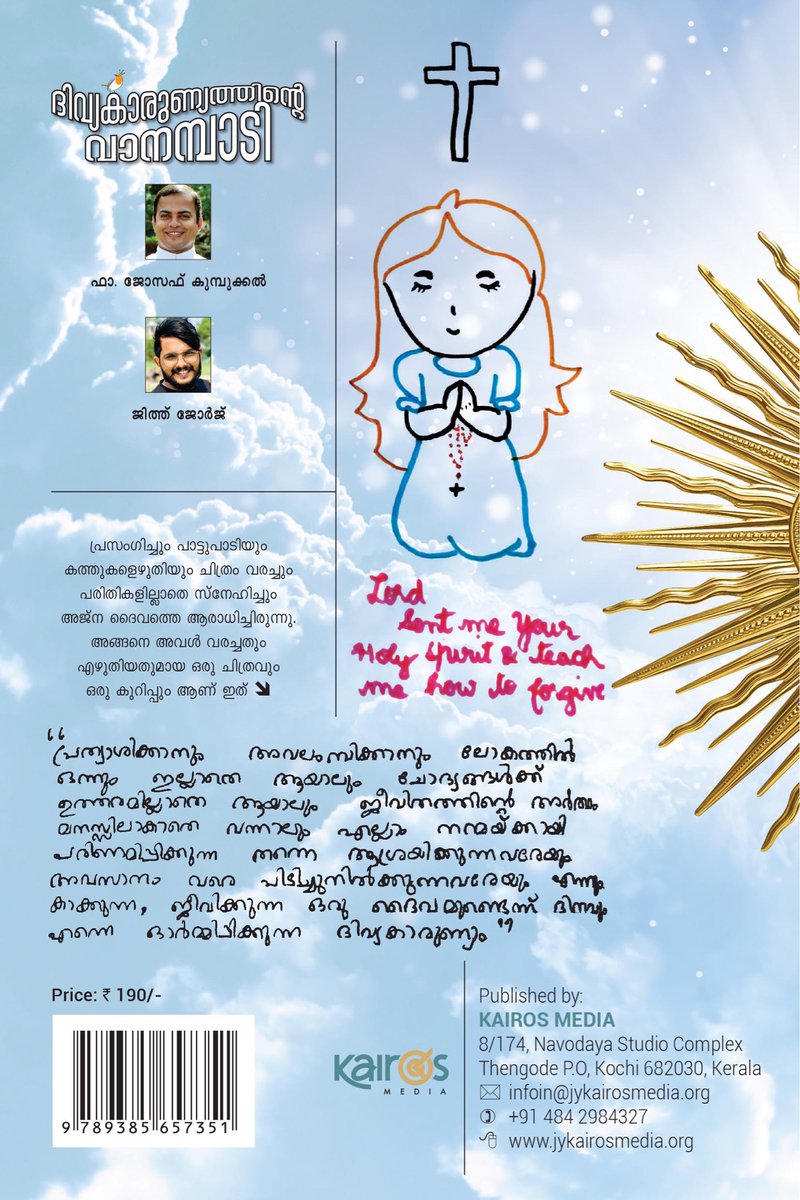 ദിവ്യകാരുണ്യത്തിന്റെ
വാനമ്പാടി
ഫാ. ജോസഫ് കുമ്പുക്കൽ
ജിത്ത് ജോർജ്
പ്രസംഗിച്ചും പാട്ടുപാടിയും
കത്തുകളെഴുതിയും ചിത്രം വരച്ചും
പരിതികളില്ലാതെ സ്നേഹിച്ചും
അജ്ന ദൈവത്തെ ആരാധിച്ചിരുന്നു.
അങ്ങനെ അവൾ വരച്ചതും
എഴുതിയതുമായ ഒരു ചിത്രവും
ഒരു കുറിപ്പും ആണ് ഇത്
Lord
Sent me Your
Holy Spirit & teach
me how to forgive
“പ്രത്യാശിക്കാനും അവലംമ്പിക്കാനും ലോകത്തിൽ
ഒന്നും ഇല്ലാതെ ആയാലും ചോദ്യങ്ങൾക്ക്
ഉത്തരമില്ലാതെ ആയാലും ജീവിതത്തിന്റെ അർത്ഥം
മനസ്സിലാകാതെ വന്നാലും എല്ലാം നന്മയ്ക്കായി
പരിണമിപ്പിക്കുന്ന തന്നെ ആശ്രയിക്കുന്നവരേയും
അവസാനം വരെ പിടിച്ചുനിൽക്കുന്നവരേയും എന്നും
കാക്കുന്ന, ജീവിക്കുന്ന ഒരു ദൈവമുണ്ടെന്ന് ദിനവും
എന്നെ ഓർമ്മിപ്പിക്കുന്ന ദിവ്യകാരുണ്യം”
Price: ₹ 190/-
9 789385 657351
KAIROS
MEDIA
Published by:
KAIROS MEDIA
8/174, Navodaya Studio Complex
Thengode P.O, Kochi 682030, Kerala
infoin@jykairosmedia.org
+91 484 2984327
www.jykairosmedia.org